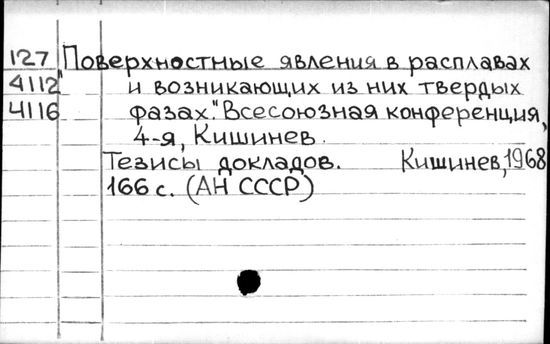 127 "Поверхностные явления в расплавах
4112 и возникающих из них твердых
4116 фазах". Всесоюзная конференция,
4-я, Кишинев.
Тезисы докладов. Кишинев, 1968
166 с. (АН СССР)